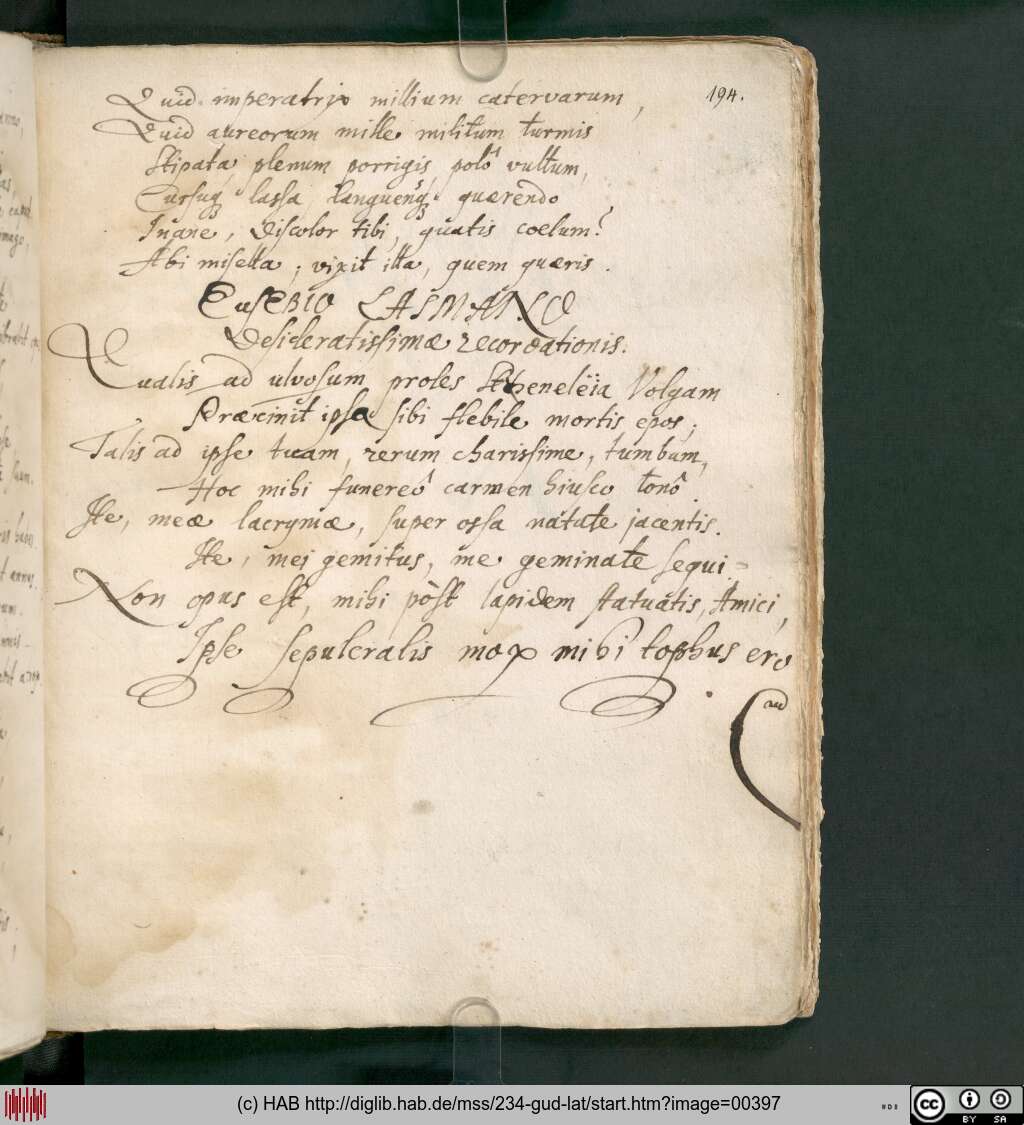 194.
Quid imperatrix millium catervarum,
Quid aureorum mille militum turmis
Stipata, plenum porrigis, polô vultum,
Cursuq; lassa, languensq; quaerendo
Inane, discolor tibi, quatis coelum?
Abi misella; vixit illa, quem quaeris.
EUSEBIO
Desideratissimæ recordationis.
Qualis ad ulvosum proles Stheneleïa Volgam
Præcinit ipsa sibi flebile mortis epos;
Talis ad ipse tuam, rerum charissime, tumbam,
Hoc mihi funereô carmen hiusco tonô.
Ite, meæ lacrymæ, super ossa natate jacentis.
Ite, mei gemitus, me geminate sequi-
Non opus est, mihi pòst lapidem statuatis, Amici,
Ipse sepulcralis mox mihi tophus ero.
(c) HAB http://diglib.hab.de/mss/234-gud-lat/start.htm?image=00397
cc BY SA